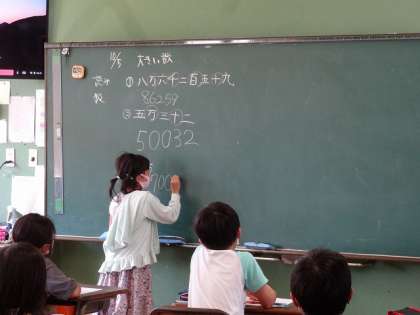 10/5 大きい数
① 八万六千二百五十九
数 86259
② 五万三十二
50032
900